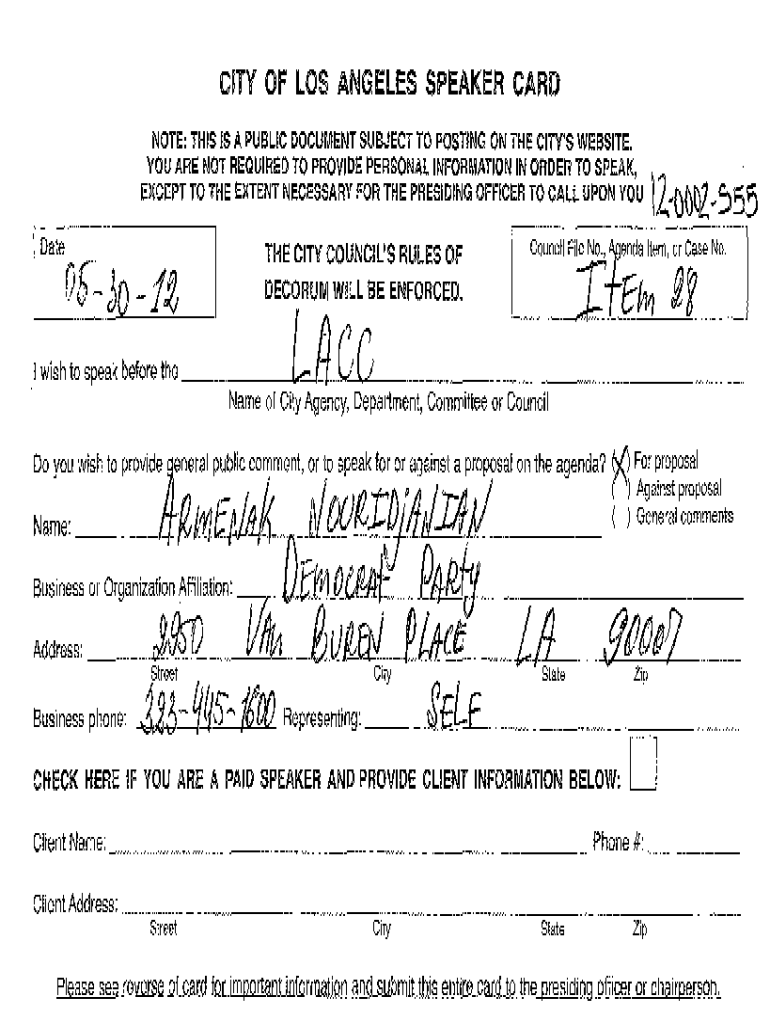 CITY OF LOS ANGELES SPEAKER CARD
NOTE: THIS IS A PUBLIC DOCUMENT SUBJECT TO POSTING ON THE CITY'S WEBSITE.
YOU ARE NOT REQUIRED TO PROVIDE PERSONAL INFORMATION IN ORDER TO SPEAK,
EXCEPT TO THE EXTENT NECESSARY FOR THE PRESIDING OFFICER TO CALL UPON YOU 12-0002-S55
Date THE CITY COUNCIL'S RULES OF Council File No., Agenda Item, or Case No.
05-30-12 DECORUM WILL BE ENFORCED. ITEM 28
I wish to speak before the LACC
Name of City Agency, Department, Committee or Council
Do you wish to provide general public comment, or to speak for or against a proposal on the agenda? (X) For proposal
( ) Against proposal
Name: ARMENAK NOURIDJANIAN ( ) General comments
Business or Organization Affiliation: DEMOCRAT PARTY
Address: 2250 VAN BUREN PLACE LA 90007
Street City State Zip
Business phone: 323-445-1600 Representing: SELF
CHECK HERE IF YOU ARE A PAID SPEAKER AND PROVIDE CLIENT INFORMATION BELOW:
Client Name: Phone #:
Client Address:
Street City State Zip
Please see reverse of card for important information and submit this entire card to the presiding officer or chairperson.